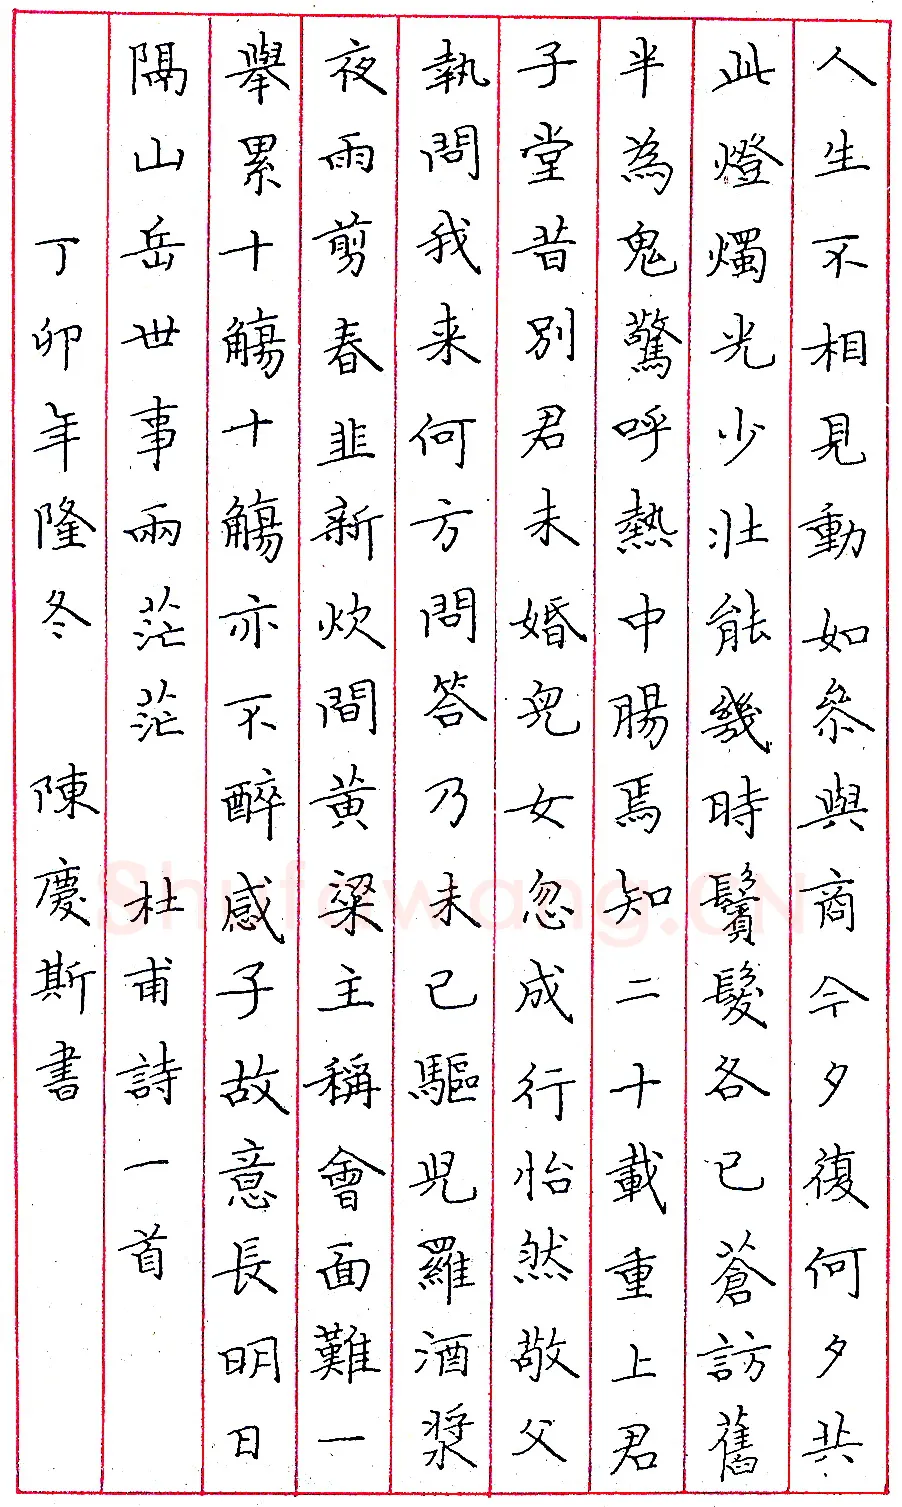 人生不相見動如參與商今夕復何夕共
此燈燭光少壯能幾時鬢髮各已蒼訪舊
半為鬼驚呼熱中腸焉知二十載重上君
子堂昔別君未婚兒女忽成行怡然敬父
執問我来何方問答乃未已驅兒羅酒漿
夜雨剪春韭新炊間黃粱主稱會面難一
舉累十觴十觴亦不醉感子故意長明日
隔山岳世事兩茫茫 杜甫詩一首
丁卯年隆冬 陳慶斯書
Shufawang.CN